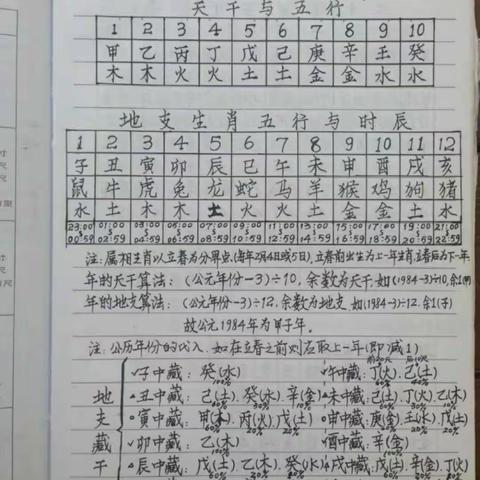 天干与五行
1 2 3 4 5 6 7 8 9 10
甲 乙 丙 丁 戊 己 庚 辛 壬 癸
木 木 火 火 土 土 金 金 水 水
地支生肖五行与时辰
1 2 3 4 5 6 7 8 9 10 11 12
子 丑 寅 卯 辰 巳 午 未 申 酉 戌 亥
鼠 牛 虎 兔 龙 蛇 马 羊 猴 鸡 狗 猪
水 土 木 木 土 火 火 土 金 金 土 水
23:00 01:00 03:00 05:00 07:00 09:00 11:00 13:00 15:00 17:00 19:00 21:00
00:59 02:59 04:59 06:59 08:59 10:59 12:59 14:59 16:59 18:59 20:59 22:59
注:属相生肖以立春为分界点,(每年2月4日或5日),立春前出生为上一年生肖,立春后为下一年
年的天干算法:(公元年份-3)÷10,余数为天干,如(1984-3)÷10,余1(甲)
年的地支算法:(公元年份-3)÷12,余数为地支,如(1984-3)÷12,余1(子)
故公元1984年为甲子年。
注:公历年份的代入,如在立春之前则应取上一年(即减1)
地支藏干
子中藏:癸(水) 100% 午中藏:丁(火).己(土)
丑中藏:己(土).癸(水).辛(金) 未中藏:己(土).丁(火).乙(木)
寅中藏:甲(木).丙(火).戊(土) 申中藏:庚(金).壬(水).戊(土)
卯中藏:乙(木) 100% 酉中藏:辛(金) 100%
辰中藏:戊(土).乙(木).癸(水) 戌中藏:戊(土).辛(金).丁(火)